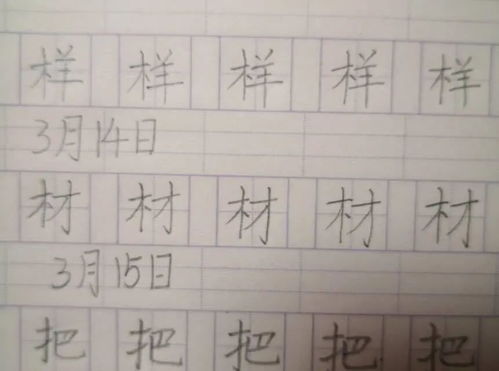 样 样 样 样 样
3月14日
材 材 材 材 材
3月15日
把 把 把 把 把